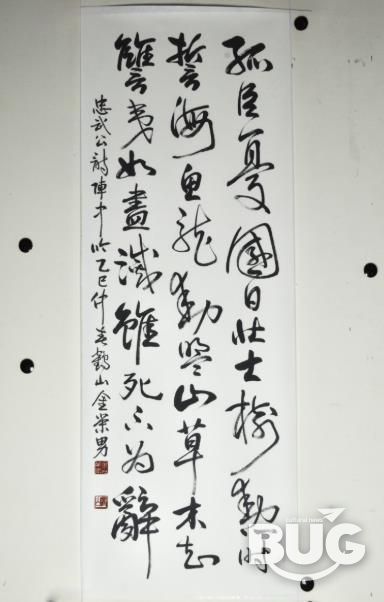 孤臣憂國日壯士樹勳时
誓海魚龍動盟山草木知
讐夷如盡滅雖死不为辭
忠武公詩陣中吟乙巳仲春鶴山金榮男
cultural news
BUG